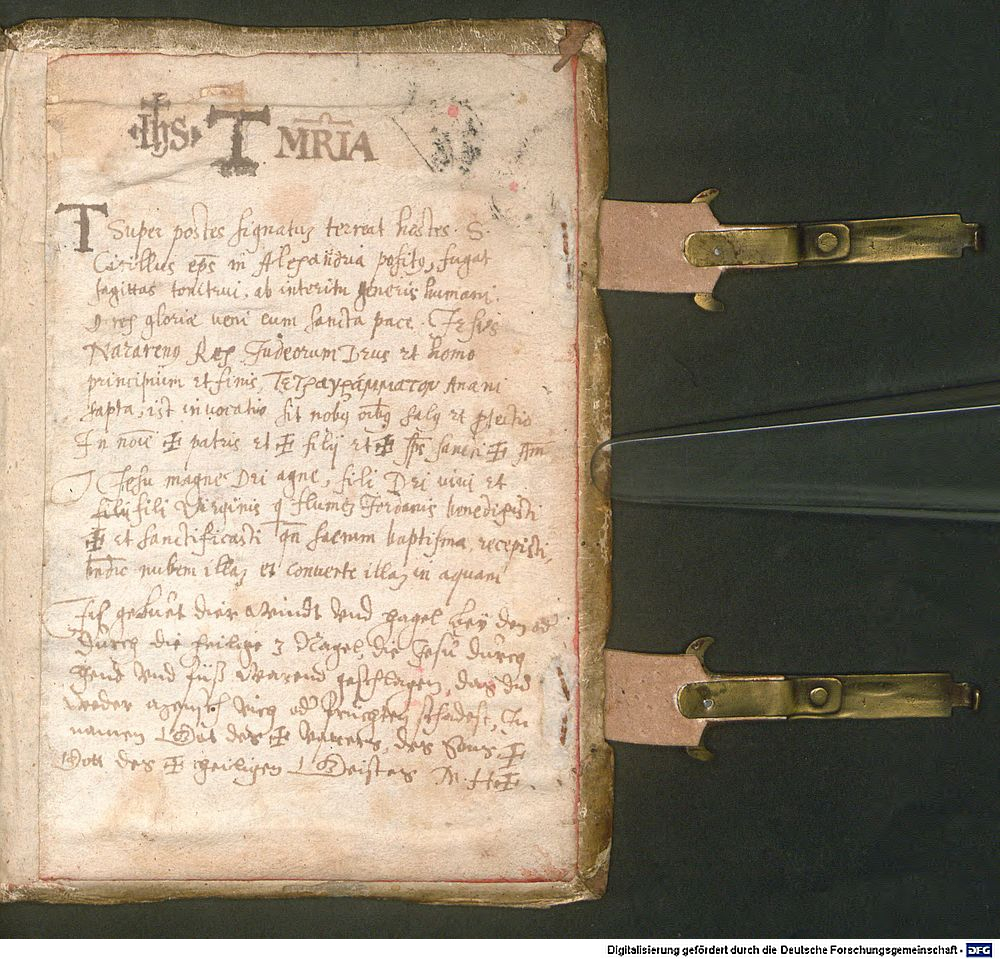 IHS T MRIA
T Super postes signatus terreat hostes. S.
Cirillus eps in Alexandria posito, fugat
sagittas tonitrui, ab interitu generis humani.
O rex gloriæ veni cum sancta pace. Jesus
Nazareno Rex Judeorum Deus et homo
principium et finis, τετραγράμματον Anani
sapta, ist invocatio sit nobis omnibus salus et
In noie ✠ patris et ✠ filij et ✠ sps sancti ✠ Am
Jesu magne Dei agne, fili Dei vivi et
fili Virginis q flumen Jordanis benedixisti
✠ et sanctificasti qn sacrum baptisma recepisti,
nubem illa et converte illa in aquam
Ich dier Windt und hagel bey
durch die heilige 3 Nägel, die Jesu durch
hend und füß warend geschlagen, das du
weder noch früchten schadest, In
namen Gott des ✠ Vatters, des Sons ✠
Gott des ✠ heiligen Geistes
Digitalisierung gefördert durch die Deutsche Forschungsgemeinschaft - DFG